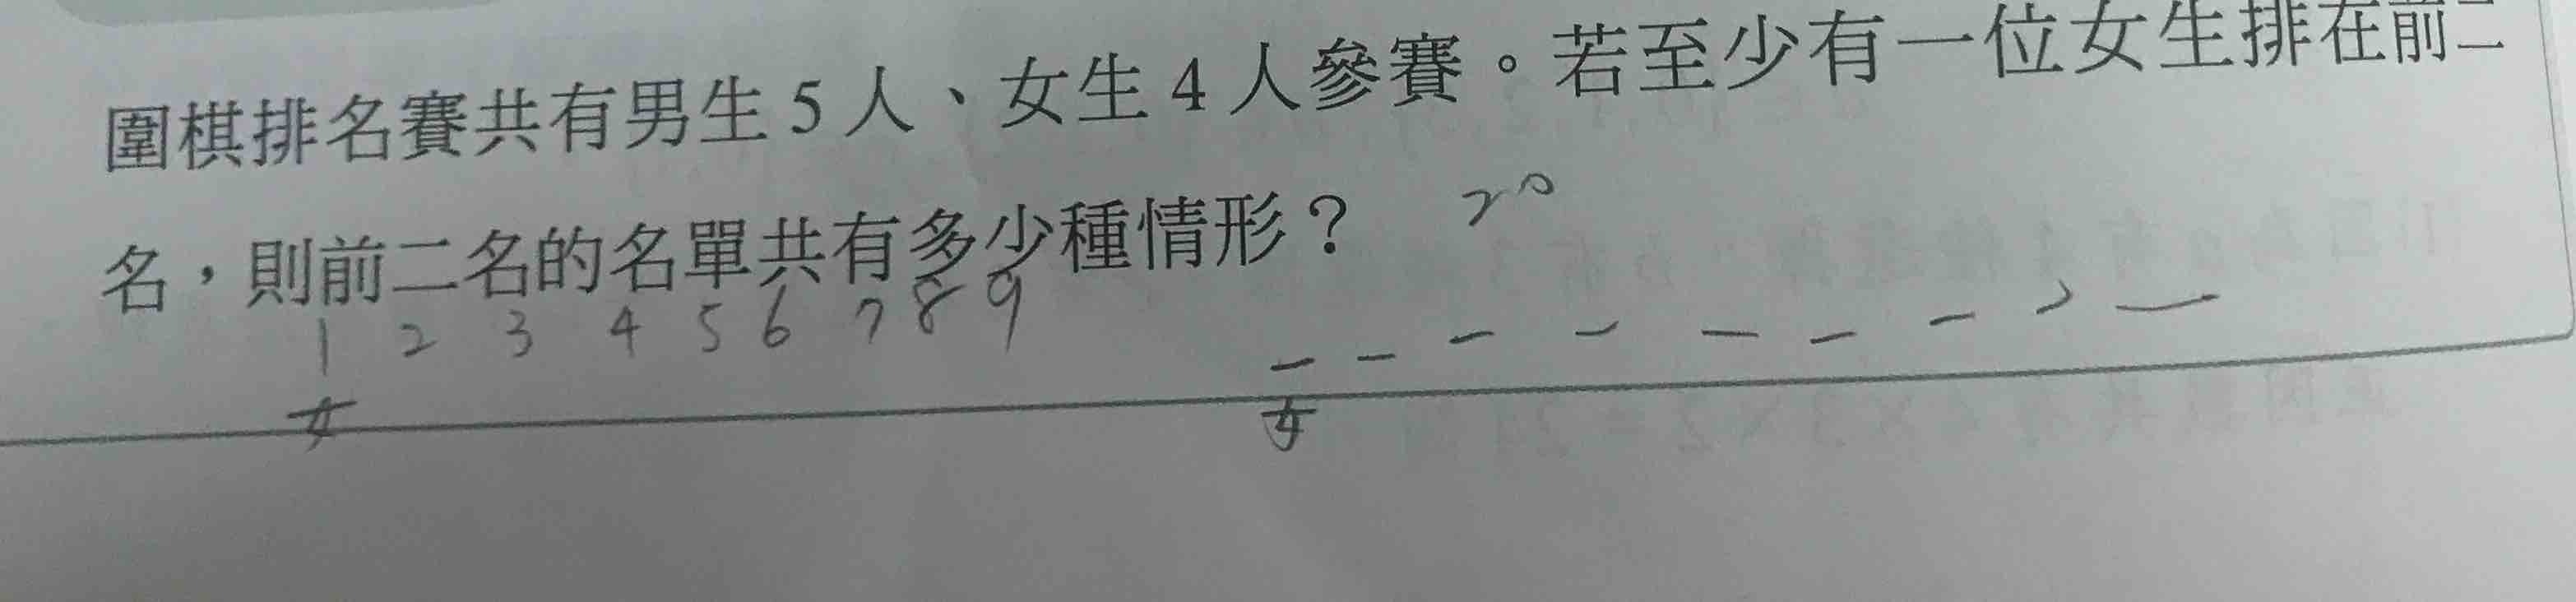 圍棋排名賽共有男生5人、女生4人參賽。若至少有一位女生排在前二
名，則前二名的名單共有多少種情形？
1 2 3 4 5 6 7 8 9
女
女